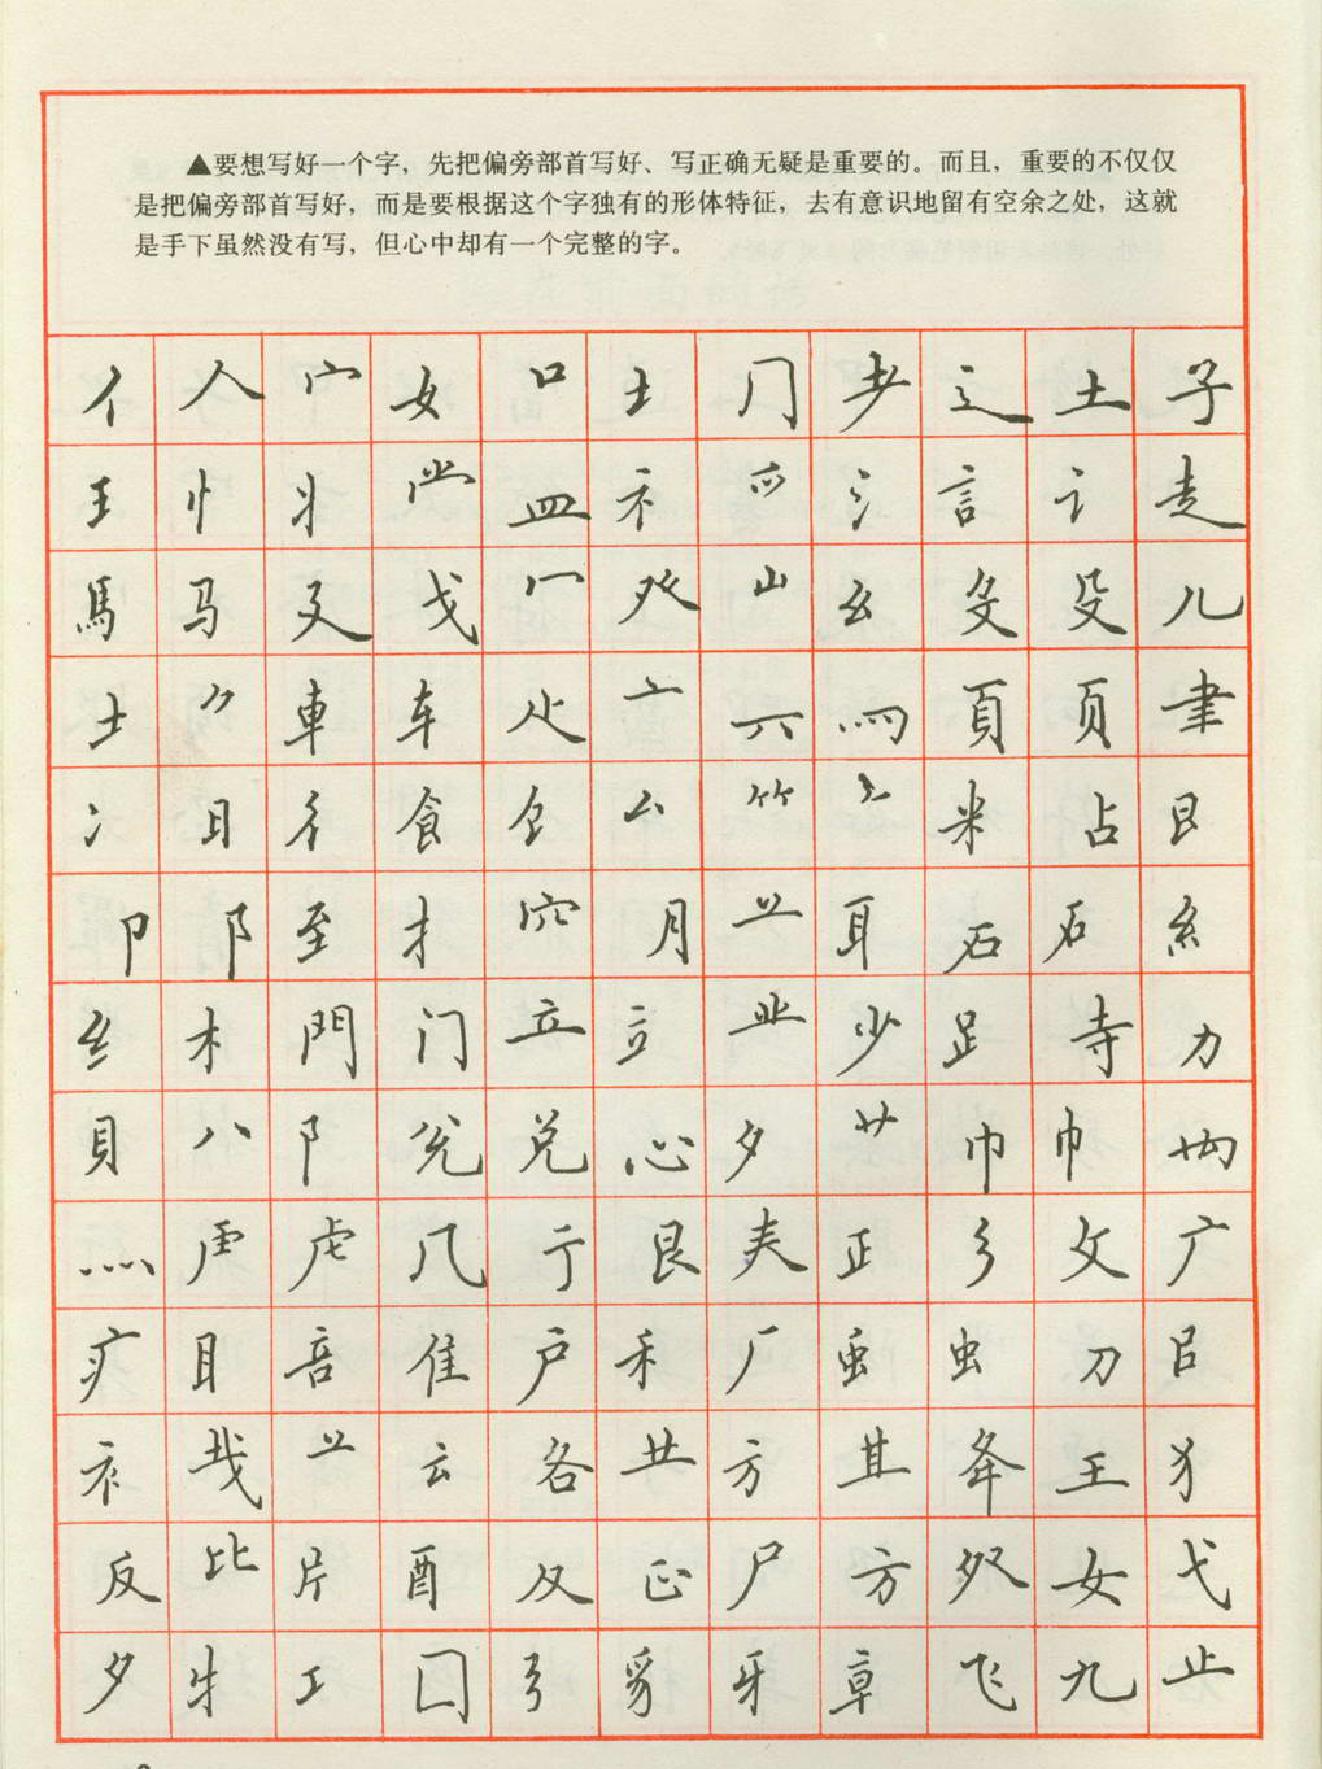 ▲要想写好一个字，先把偏旁部首写好、写正确无疑是重要的。而且，重要的不仅仅
是把偏旁部首写好，而是要根据这个字独有的形体特征，去有意识地留有空余之处，这就
是手下虽然没有写，但心中却有一个完整的字。
亻 人 宀 女 口 土 冂 耂 辶 土 子
王 忄 丬 龸 皿 礻 覀 氵 言 讠 走
馬 马 廴 戈 冖 癶 山 幺 殳 儿
士 車 车 亠 罒 頁 页 聿
冫 日 彳 食 饣 厶 竹 米 占
卩 阝 至 扌 穴 月 䒑 耳 石 石 糹
纟 木 門 门 立 立 业 少 𧾷 寺 力
貝 八 阝 兑 心 夕 艹 巾 巾
灬 虍 几 亍 艮 正 彡 攵 广
疒 目 音 隹 户 禾 厂 虫 虫 刀
衤 䒑 云 各 龷 方 其 夅 王 犭
反 比 片 酉 及 正 尸 方 女 弋
夕 牛 工 囗 弓 豸 牙 章 飞 九 止